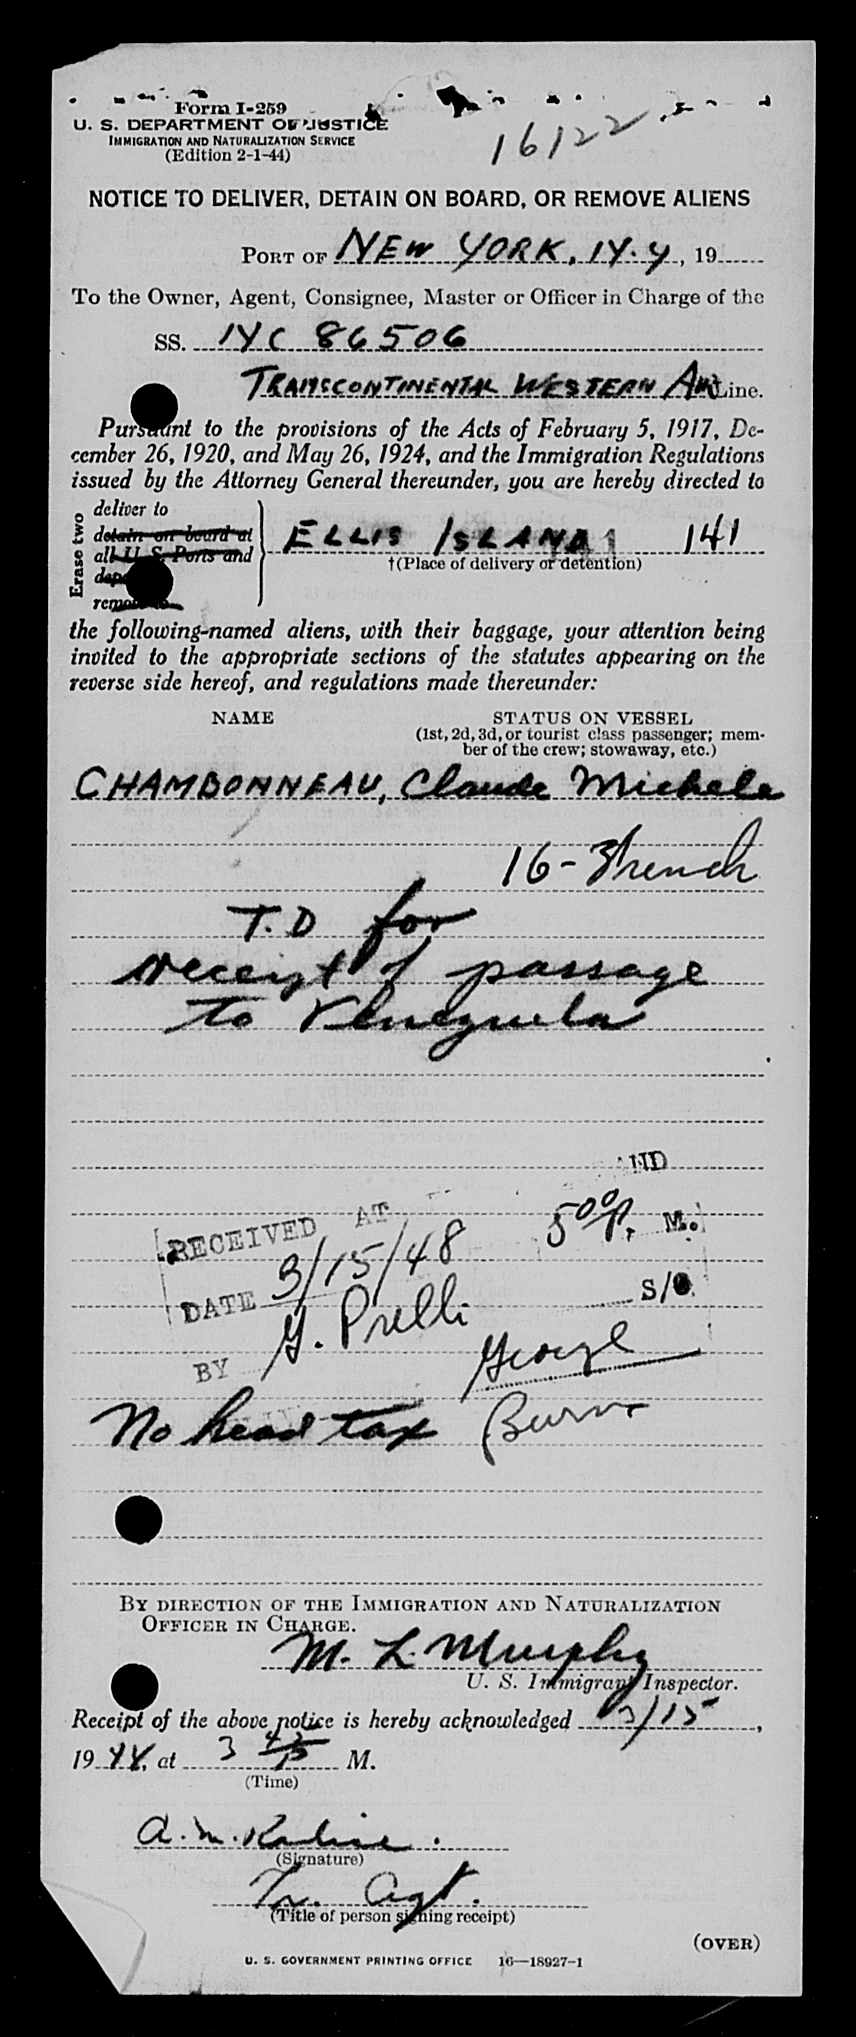 Form I-259
U. S. DEPARTMENT OF JUSTICE
IMMIGRATION AND NATURALIZATION SERVICE
(Edition 2-1-44)
16122
NOTICE TO DELIVER, DETAIN ON BOARD, OR REMOVE ALIENS
PORT OF NEW YORK, N.Y., 19
To the Owner, Agent, Consignee, Master or Officer in Charge of the
SS. NC 86506
TRANSCONTINENTAL WESTERN AIR Line.
Pursuant to the provisions of the Acts of February 5, 1917, De-
cember 26, 1920, and May 26, 1924, and the Immigration Regulations
issued by the Attorney General thereunder, you are hereby directed to
Erase two
deliver to
detain on board at
all U. S. Ports and
remove to
ELLIS ISLAND 141
†(Place of delivery or detention)
the following-named aliens, with their baggage, your attention being
invited to the appropriate sections of the statutes appearing on the
reverse side hereof, and regulations made thereunder:
NAME STATUS ON VESSEL
(1st, 2d, 3d, or tourist class passenger; mem-
ber of the crew; stowaway, etc.)
CHAMBONNEAU, Claude Michele
16 - French
T.D for
receipt of passage
to Venezuela
RECEIVED AT 5 00 P. M.
DATE 3/15/48 S/
BY G. Prelli
George
Burns
No head tax
BY DIRECTION OF THE IMMIGRATION AND NATURALIZATION
OFFICER IN CHARGE.
M. L. Murphy
U. S. Immigrant Inspector.
Receipt of the above notice is hereby acknowledged 3/15,
19 48, at 3 45 M.
(Time)
A. M.
(Signature)
Tr. Agt.
(Title of person signing receipt)
(OVER)
U. S. GOVERNMENT PRINTING OFFICE 16—18927-1